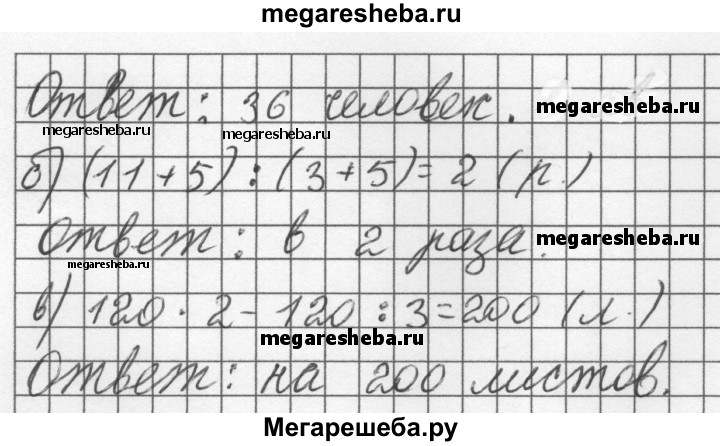 megaresheba.ru
Ответ: 36 человек. megaresheba.ru
megaresheba.ru megaresheba.ru
б) (11+5) : (3+5) = 2 (р.)
Ответ: в 2 раза. megaresheba.ru
megaresheba.ru
в) 120 · 2 - 120 : 3 = 200 (л.)
megaresheba.ru
Ответ: на 200 листов.
Мегарешеба.ру